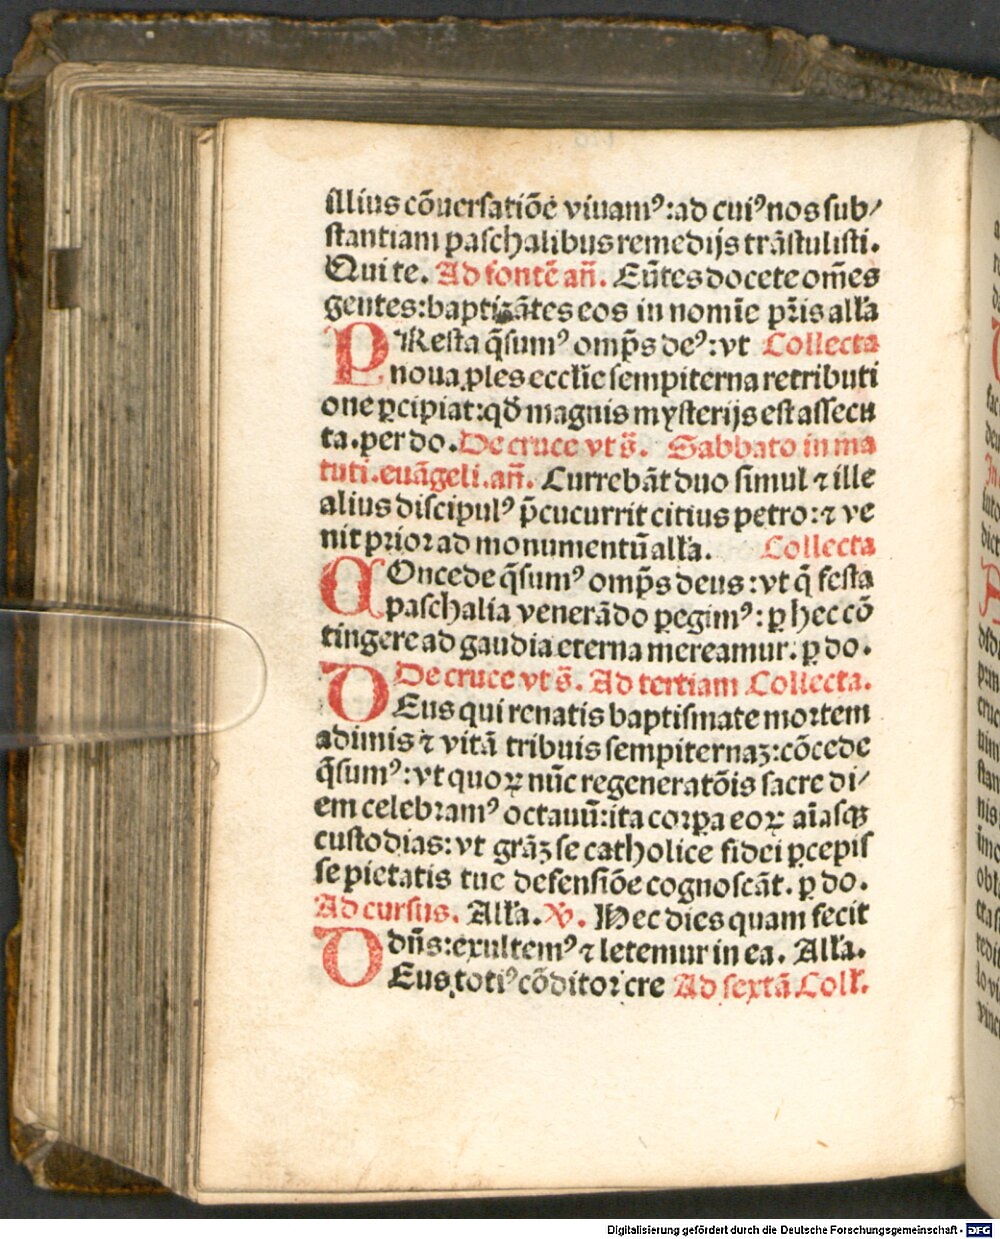 illius cōuersatiōe viuamꝰ:ad cuiꝰ nos sub/
stantiam paschalibus remedijs trāstulisti.
Qui te. Ad fontē an̄. Eūtes docete om̄es
gentes:baptizātes eos in nomīe pr̄is alɫa
PResta q̄sumꝰ omp̄s deꝰ:vt Collecta
noua ꝓles eccłie sempiterna retributi
one ꝑcipiat:qđ magnis mysterijs est assecu
ta.per do.De cruce vt s̄. Sabbato in ma
tuti.euāgeli.an̄. Currebāt duo simul ⁊ ille
alius discipulꝰ p̄cucurrit citius petro:⁊ ve
nit prior ad monumentū alɫa. Collecta
COncede q̄sumꝰ omp̄s deus:vt q̄ festa
paschalia venerādo pegimꝰ: ꝑ hec cō
tingere ad gaudia eterna mereamur. ꝑ do.
De cruce vt s̄. Ad tertiam Collecta.
DEus qui renatis baptismate mortem
adimis ⁊ vitā tribuis sempiternaꝫ:cōcede
q̄sumꝰ:vt quoꝝ nūc regeneratōis sacre di/
em celebramꝰ octauū:ita corꝑa eoꝝ aīasqꝫ
custodias: vt grāꝫ se catholice fidei ꝑcepis
se pietatis tue defensiōe cognoscāt. ꝑ do.
Ad cursus. Alɫa. ℣. Hec dies quam fecit
dn̄s:exultemꝰ ⁊ letemur in ea. Alɫa.
DEus totiꝰ cōditor cre Ad sextā Coll̄.
Digitalisierung gefördert durch die Deutsche Forschungsgemeinschaft - DFG